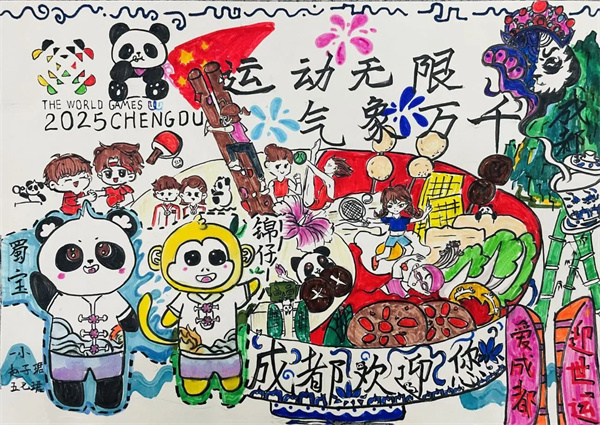 运动无限
气象万千
THE WORLD GAMES
2025CHENGDU
蜀宝
锦仔
成都欢迎你
爱成都
迎世运
一小